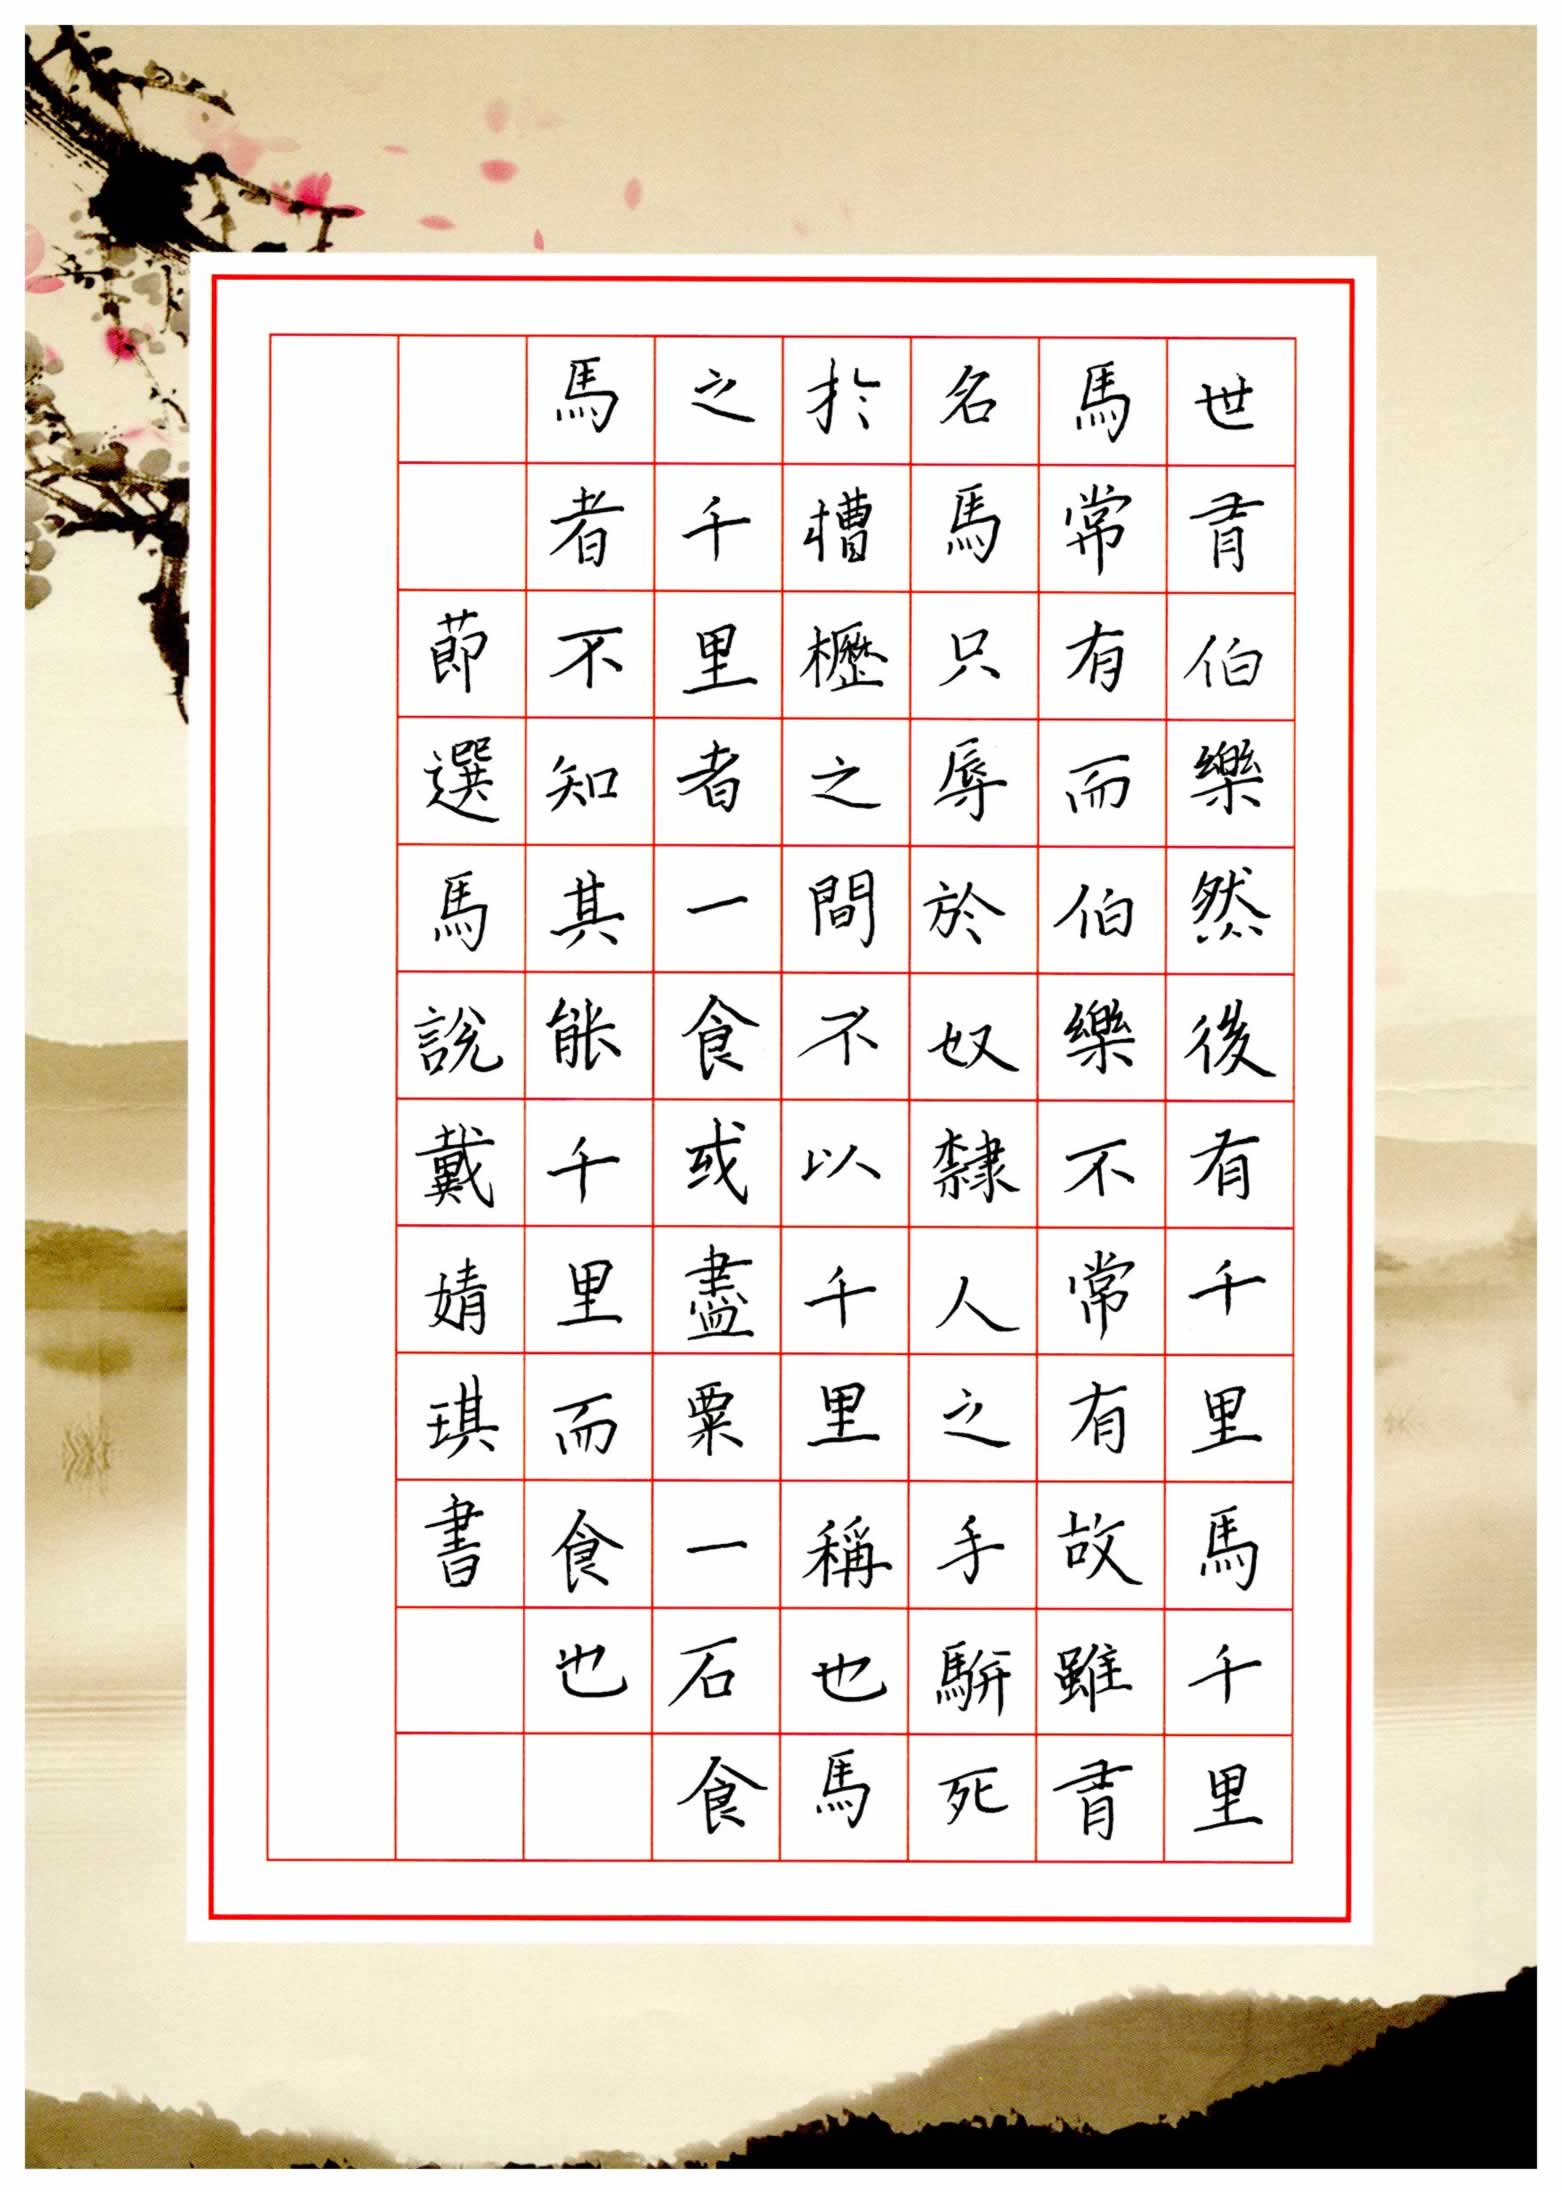 世有伯樂然後有千里馬千里
馬常有而伯樂不常有故雖有
名馬只辱於奴隸人之手駢死
於槽櫪之間不以千里稱也馬
之千里者一食或盡粟一石食
馬者不知其能千里而食也
節選馬說戴婧琪書